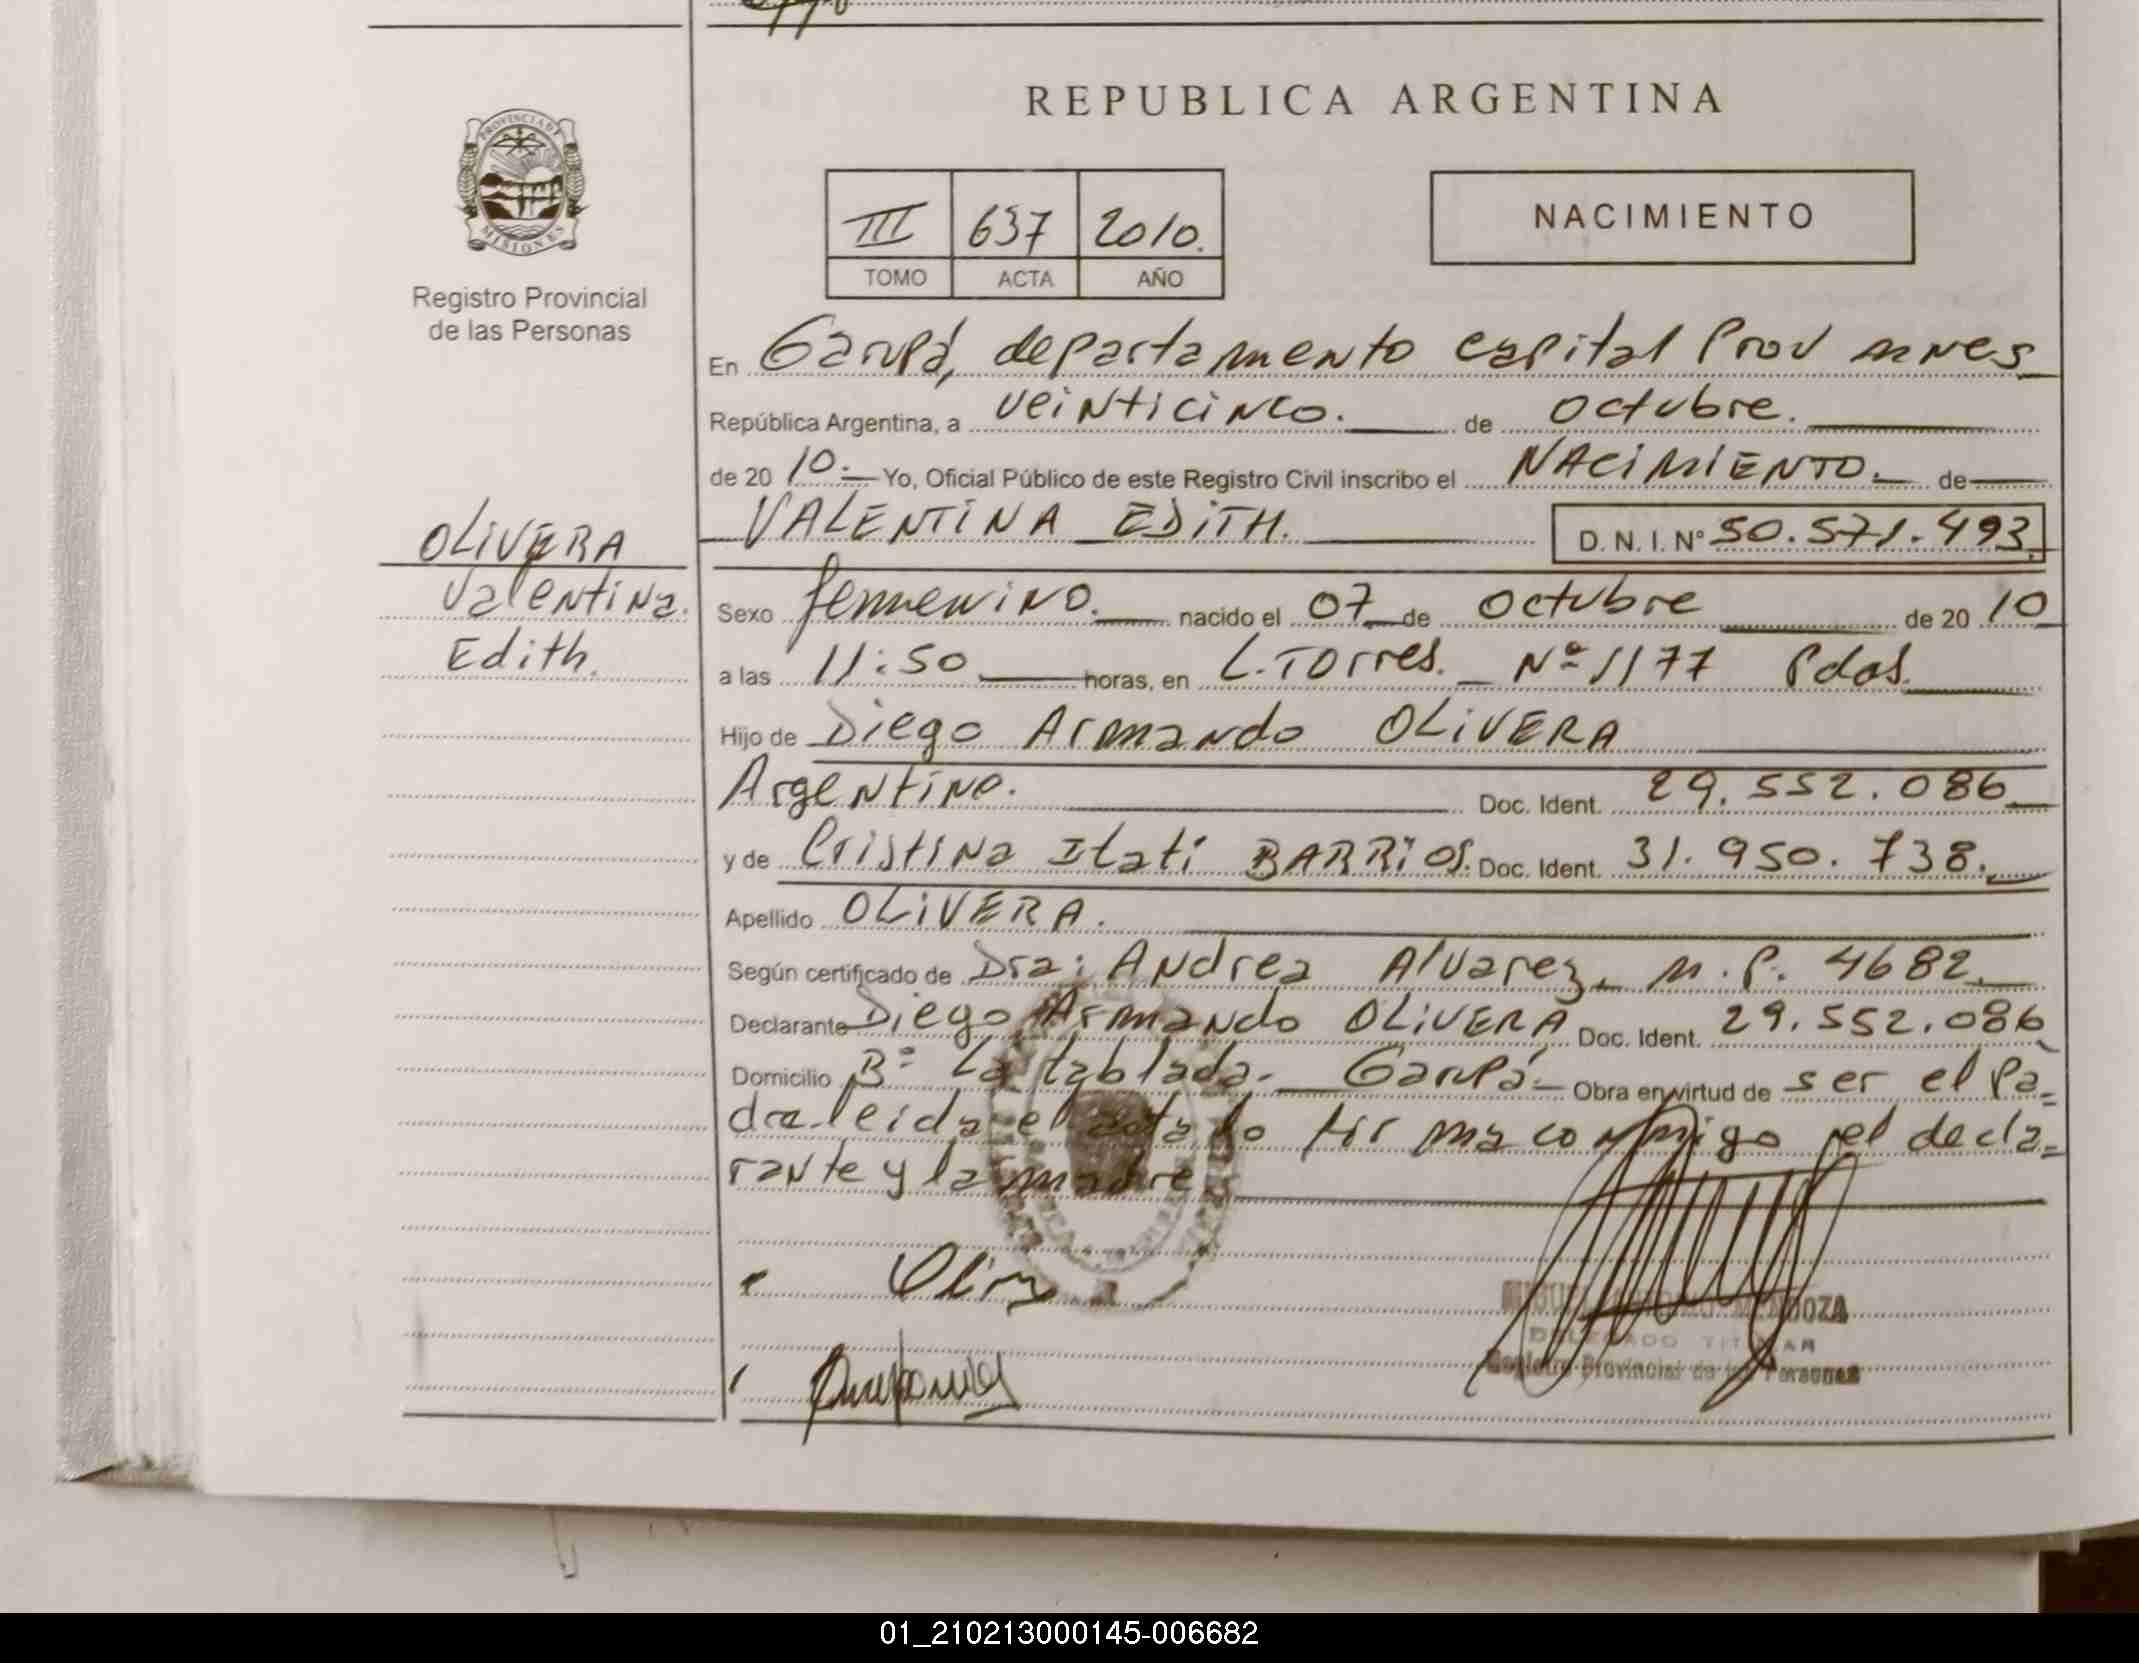 REPUBLICA ARGENTINA
PROVINCIA DE
MISIONES
Registro Provincial
de las Personas
III 637 2010.
TOMO ACTA AÑO
NACIMIENTO
En Garupá, departamento capital Prov mnes
República Argentina, a veinticinco. de octubre.
de 20 10. Yo, Oficial Público de este Registro Civil inscribo el NACIMIENTO. de
VALENTINA EDITH. D. N. I. Nº 50.571.493
OLIVERA
Valentina.
Edith.
Sexo femenino. nacido el 07 de Octubre de 20 10
a las 11:50 horas, en L. Torres. Nº 1177 Pdas.
Hijo de Diego Armando OLIVERA
Argentino. Doc. Ident. 29.552.086
y de Cristina Itatí BARRIOS. Doc. Ident. 31.950.738.
Apellido OLIVERA.
Según certificado de Dra: Andrea Alvarez. M.P. 4682.
Declarante Diego Armando OLIVERA Doc. Ident. 29.552.086
Domicilio Bº La tablada. Garupá. Obra en virtud de ser el Pa=
dre leida el acta lo firma conmigo el decla=
rante y la madre
MENDOZA
DELEGADO TITULAR
Registro Provincial de las Personas
01_210213000145-006682